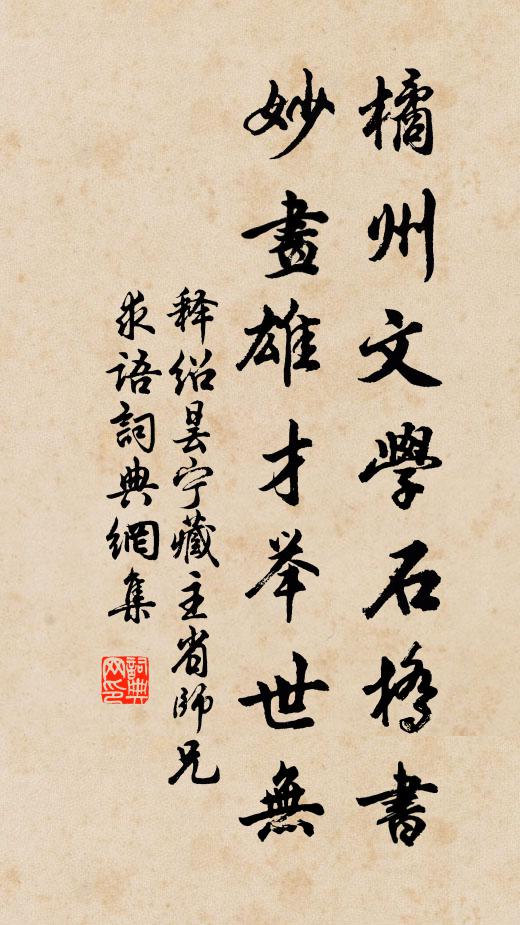 橘州文學石橋書
妙畫雄才举世無
释绍昙宁藏主省師兄
求语詞典網集
詞典网印